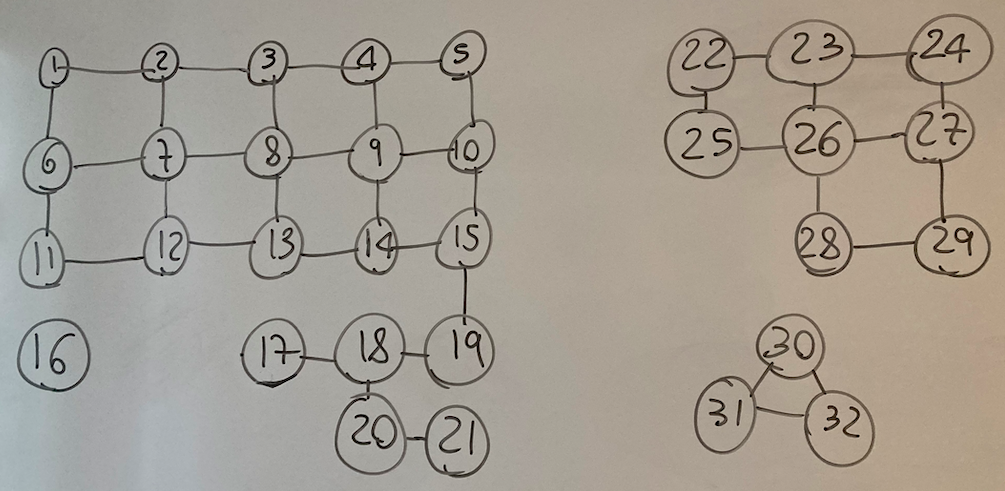 1 2 3 4 5
6 7 8 9 10
11 12 13 14 15
16 17 18 19
20 21
22 23 24
25 26 27
28 29
30
31 32